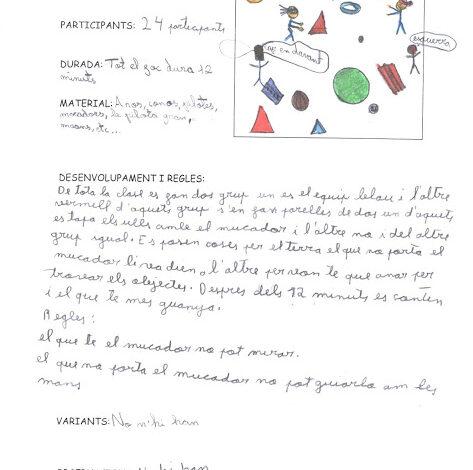 PARTICIPANTS: 24 participants
esquerra
ves endavant
DURADA: Tot el joc dura 12
minuts
MATERIAL: Anos, conos, pilotes,
mocadors, la pilota gran,
maons, etc...
DESENVOLUPAMENT I REGLES:
De tota la clase es fan dos grup un es el equip blau i l'altre
vermell d'aquets grup s'en fan parelles de dos un d'aquets
es tapa els ulls amb el mucador i l'altre no i del altre
grup igual. Es posen coses per el terra el que no porta el
mucador li va dien a l'altre per on te que anar per
trovar els objectes. Despres dels 12 minuts es conten
i el que te mes guanya.
Regles:
el que te el mucador no pot mirar.
el que no porta el mucador no pot guiarlo am les
mans
VARIANTS: No n'hi han
N'hi han